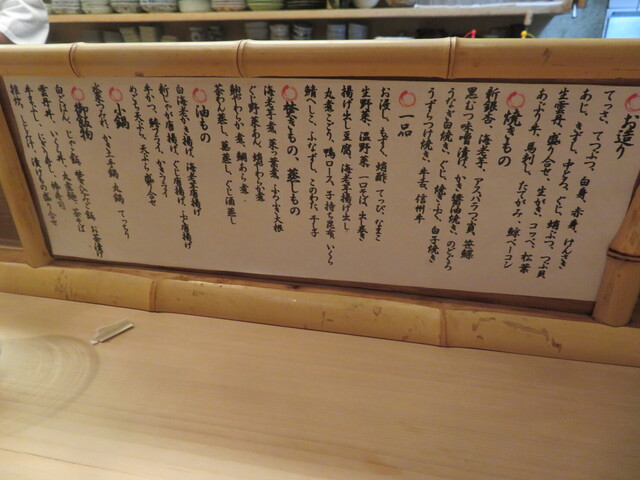 お造り
てっさ、てつぶつ、白身、赤身、けんさき
あじ、きずし、中とろ、ぐじ、蛸ぶつ、つぶ貝
生雲丹、盛り合せ、生がき、コッペ、松葉
あぶり牛、馬刺し、たてがみ、鯨ベーコン
焼きもの
新銀杏、海老芋、アスパラつぶ貝、笹鰈
黒むつ味噌漬け、かき醤油焼き、のどぐろ
うなぎ白焼き、ぐじ、焼きふぐ、白子焼き
うずらつけ焼き、牛舌、信州牛
一品
お浸し、もずく、蛸酢、てっぴ、なまこ
生野菜、温野菜、一口そば、出し巻き
揚げ出し豆腐、海老芋揚げ出し
丸煮こごり、鴨ロース、子持ち昆布、いくら
鯖へしこ、ふなずし、このわた、干し子
焚きもの、蒸しもの
海老芋煮、菜っ葉煮、ふろふき大根
ぐじ野菜あん、蛸やわらか煮
鮑やわらか煮、鯛あら煮
茶わん蒸し、蕪蒸し、ぐじ酒蒸し
油もの
白海老かき揚げ、海老芋唐揚げ
新じゃが唐揚げ、ぐじ唐揚げ、ふぐ唐揚げ
牛かつ、鱧フライ、かきフライ
めごち天ぷら、天ぷら盛り合せ
小鍋
かき土手鍋、てっちり
御飯物
白ごはん、じゃこ鍋、お茶漬け
雲丹丼、いくら丼、にゅう麺、茶そば
牛まぶし、にぎり寿し、棒寿司
雑炊、しじみ汁、漬けもの盛り合せ